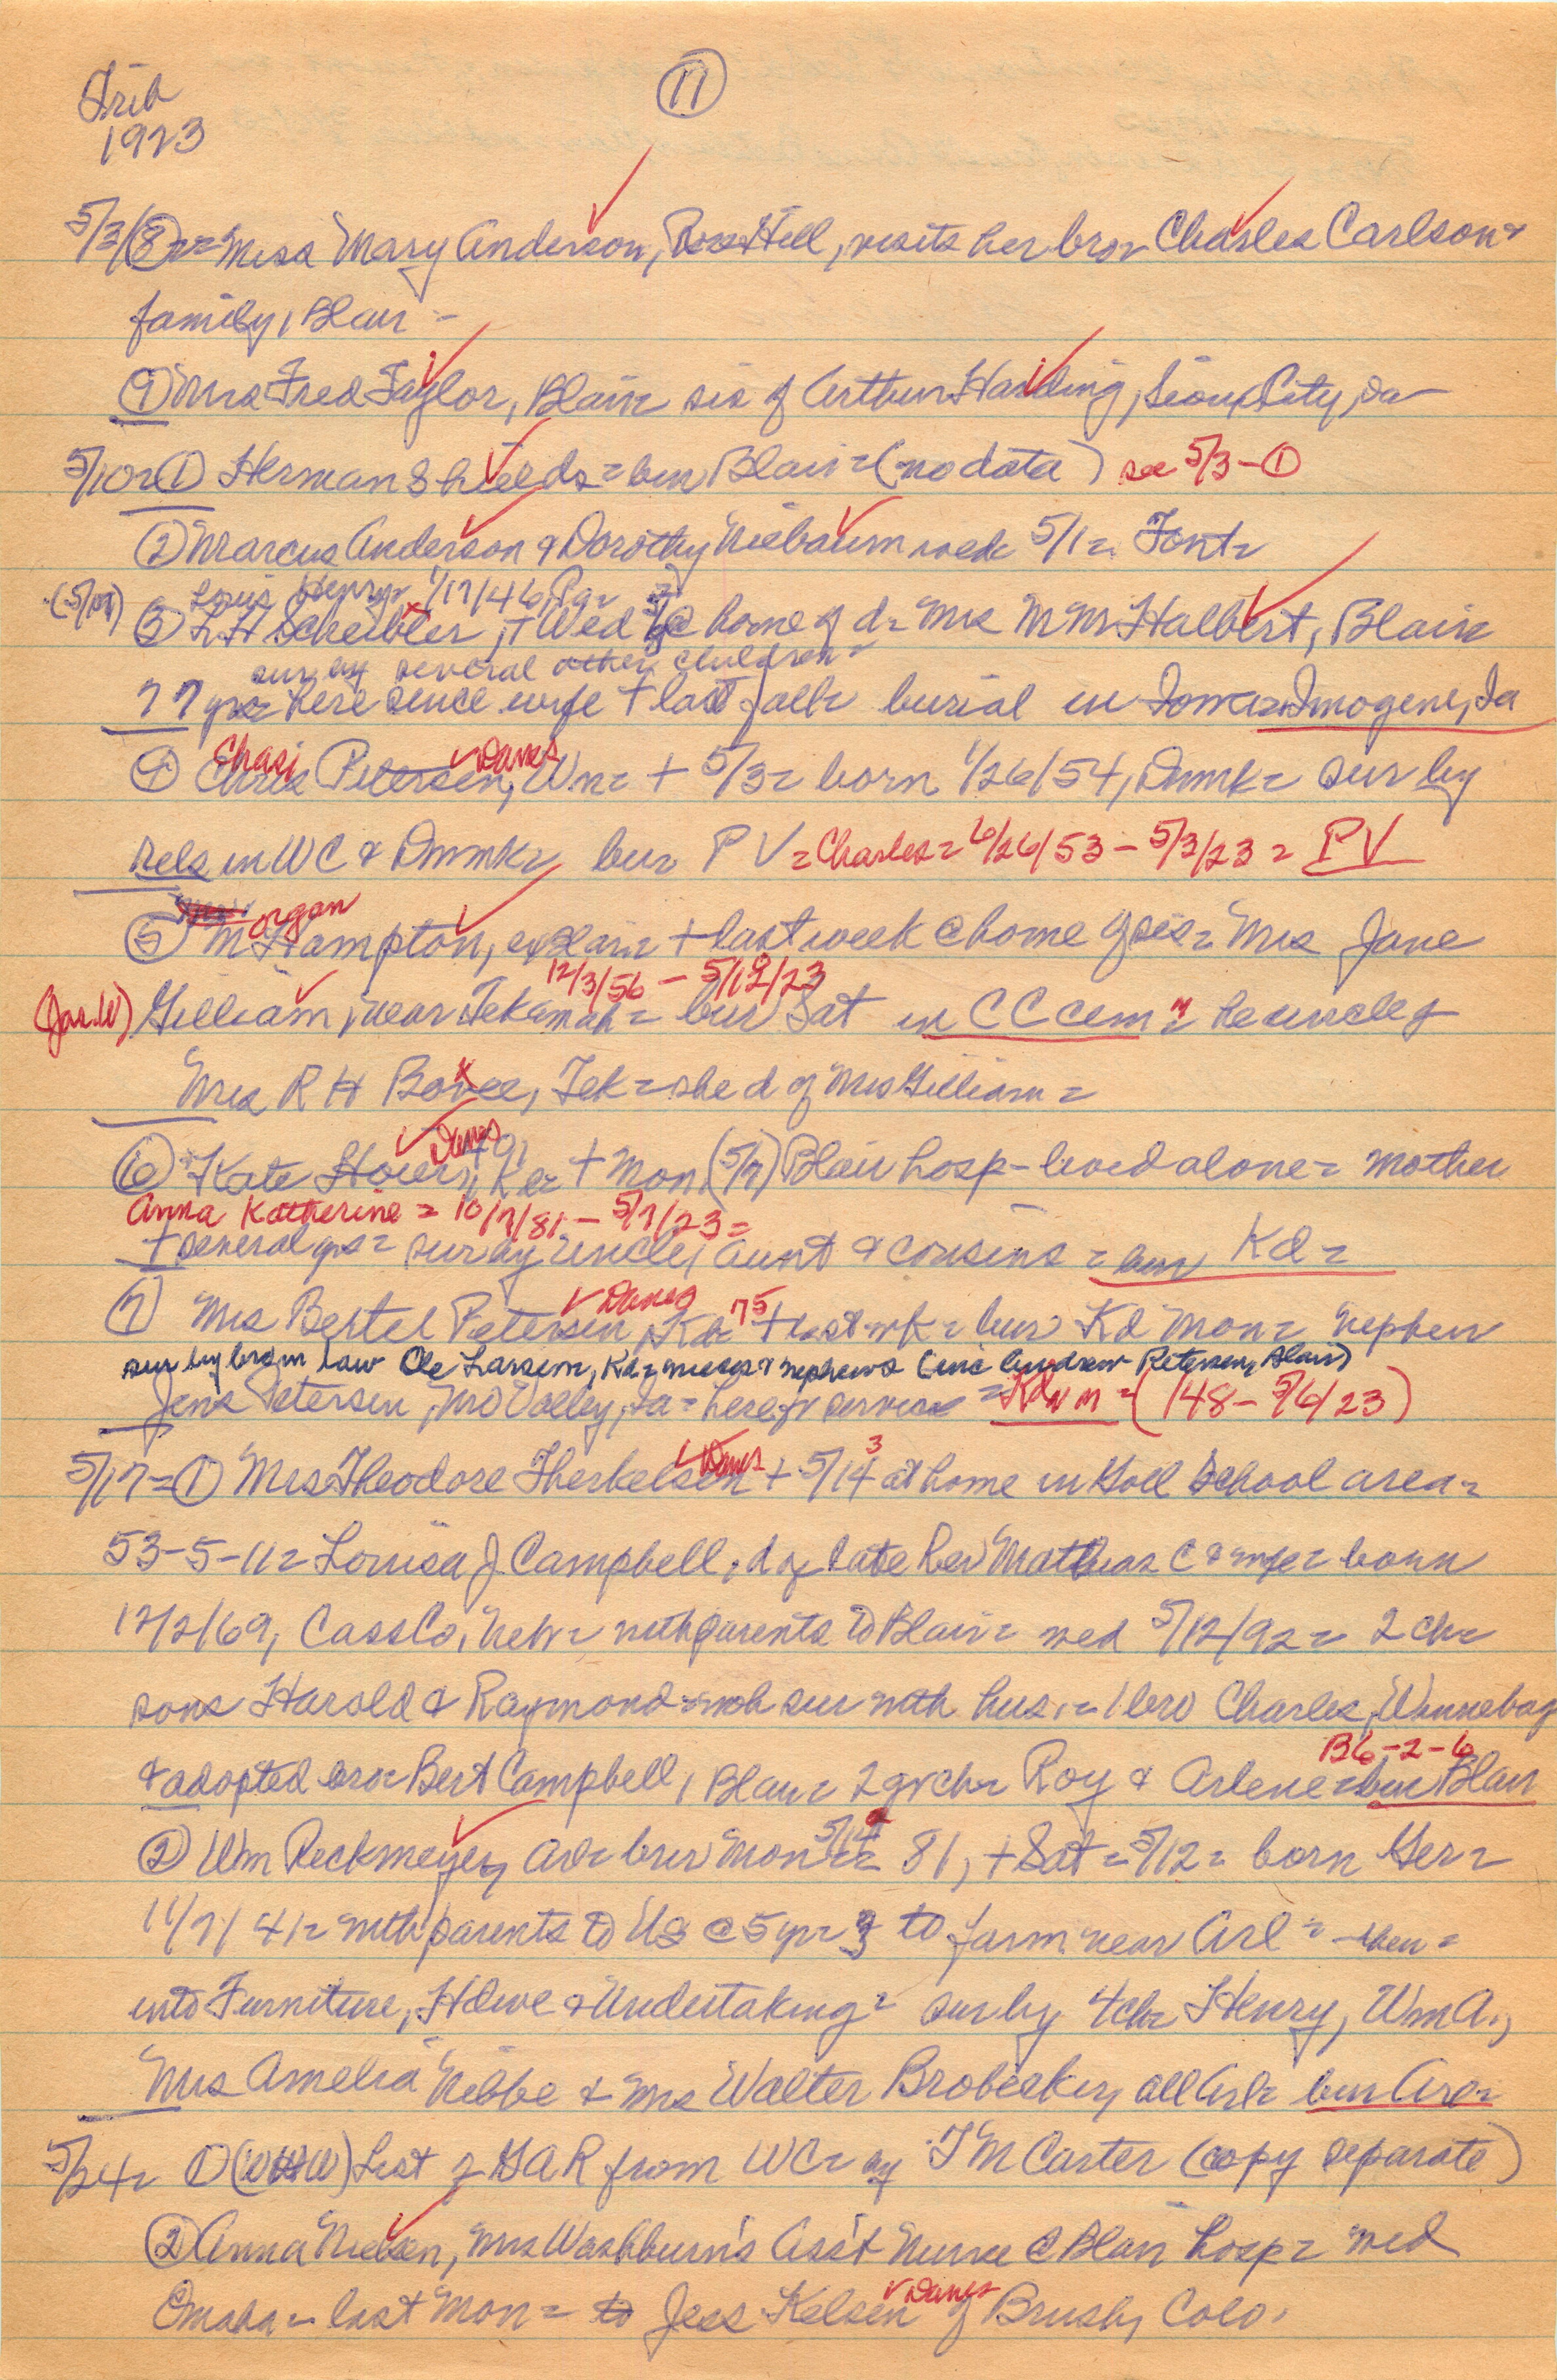 Trib
1923
11
5/3/ 8 = Miss Mary Anderson, Rose Hill, visits her bro = Charles Carlson &
family, Blair -
9 Mrs Fred Taylor, Blair = sis of Arthur Harding, Sioux City, Ia -
5/10 = 1 Herman Shields = bur Blair = (no data) see 5/3 - 1
2 Marcus Anderson & Dorothy Niebaum wed 5/1 = Font =
Louis Henry = 1/17/46, Pa =
(5/09) 3 L H Scheibler, + Wed @ home of d = Mrs M M Halbert, Blair
sur by several other children =
77 yrs = here since wife + last fall = burial in Imogene, Ia
Chas ✓Danes
4 Chris Petersen, Wn = + 5/3 = born 1/26/54, Dnmk = sur by
rels in WC & Dnmk = bur PV = Charles = 6/26/53 - 5/3/23 = PV
organ
5 M Hampton, ex Blair = + last week @ home of sis = Mrs Jane
12/3/56 - 5/12/23
(Jas. W) Gilliam, near Tekamah = bur Sat in CC cem = he uncle of
Mrs R H Bovee, Tek = she d of Mrs Gilliam =
Danes 41
6 Kate Hovers, Ke = + Mon (5/7) Blair hosp - lived alone = mother
Anna Katherine = 10/7/81 - 5/7/23 =
+ several yrs = sur by uncle, aunt & cousins = bur Kd =
✓Danes 75
7 Mrs Bertel Petersen, Kd = + last wk = bur Kd Mon = nephew
sur by bro in law Ole Larsen, Kd = nieces & nephews (inc Andrew Petersen, Blair)
Jens Petersen, Mo Valley, Ia = here for service = Kd = (148 - 5/6/23)
✓Danes 3
5/17 = 1 Mrs Theodore Therkelsen + 5/14 at home in Goll School area =
53-5-11 = Louisa J. Campbell, d of late Rev Mathias C & wife = born
12/2/69, Cass Co, Neb = with parents to Blair = wed 5/12/92 = 2 ch =
sons Harold & Raymond = who sur with hus. = 1 bro Charles, Winnebag
B6-2-6
& adopted bro = Bert Campbell, Blair = 2 gr ch = Roy & Arlene = bur Blair
5/14
2 Wm Reckmeyer, Arl = bur Mon = 81, + Sat = 5/12 = born Ger =
11/7/41 = with parents to US @ 5 yr = to farm near Arl = then =
into Furniture, Hdwe & Undertaking = sur by 4 ch = Henry, Wm A.,
Mrs Amelia Nibbe & Mrs Walter Brobecker, all Arl = bur Arl =
5/24 = 1 (WHW) List of GAR from WC = by T M Carter (copy separate)
2 Anna Nielsen, Mrs Washburn's Ass't Nurse @ Blair hosp = wed
✓Danes
Omaha = last Mon = to Jess Kelsen of Brush, Colo.